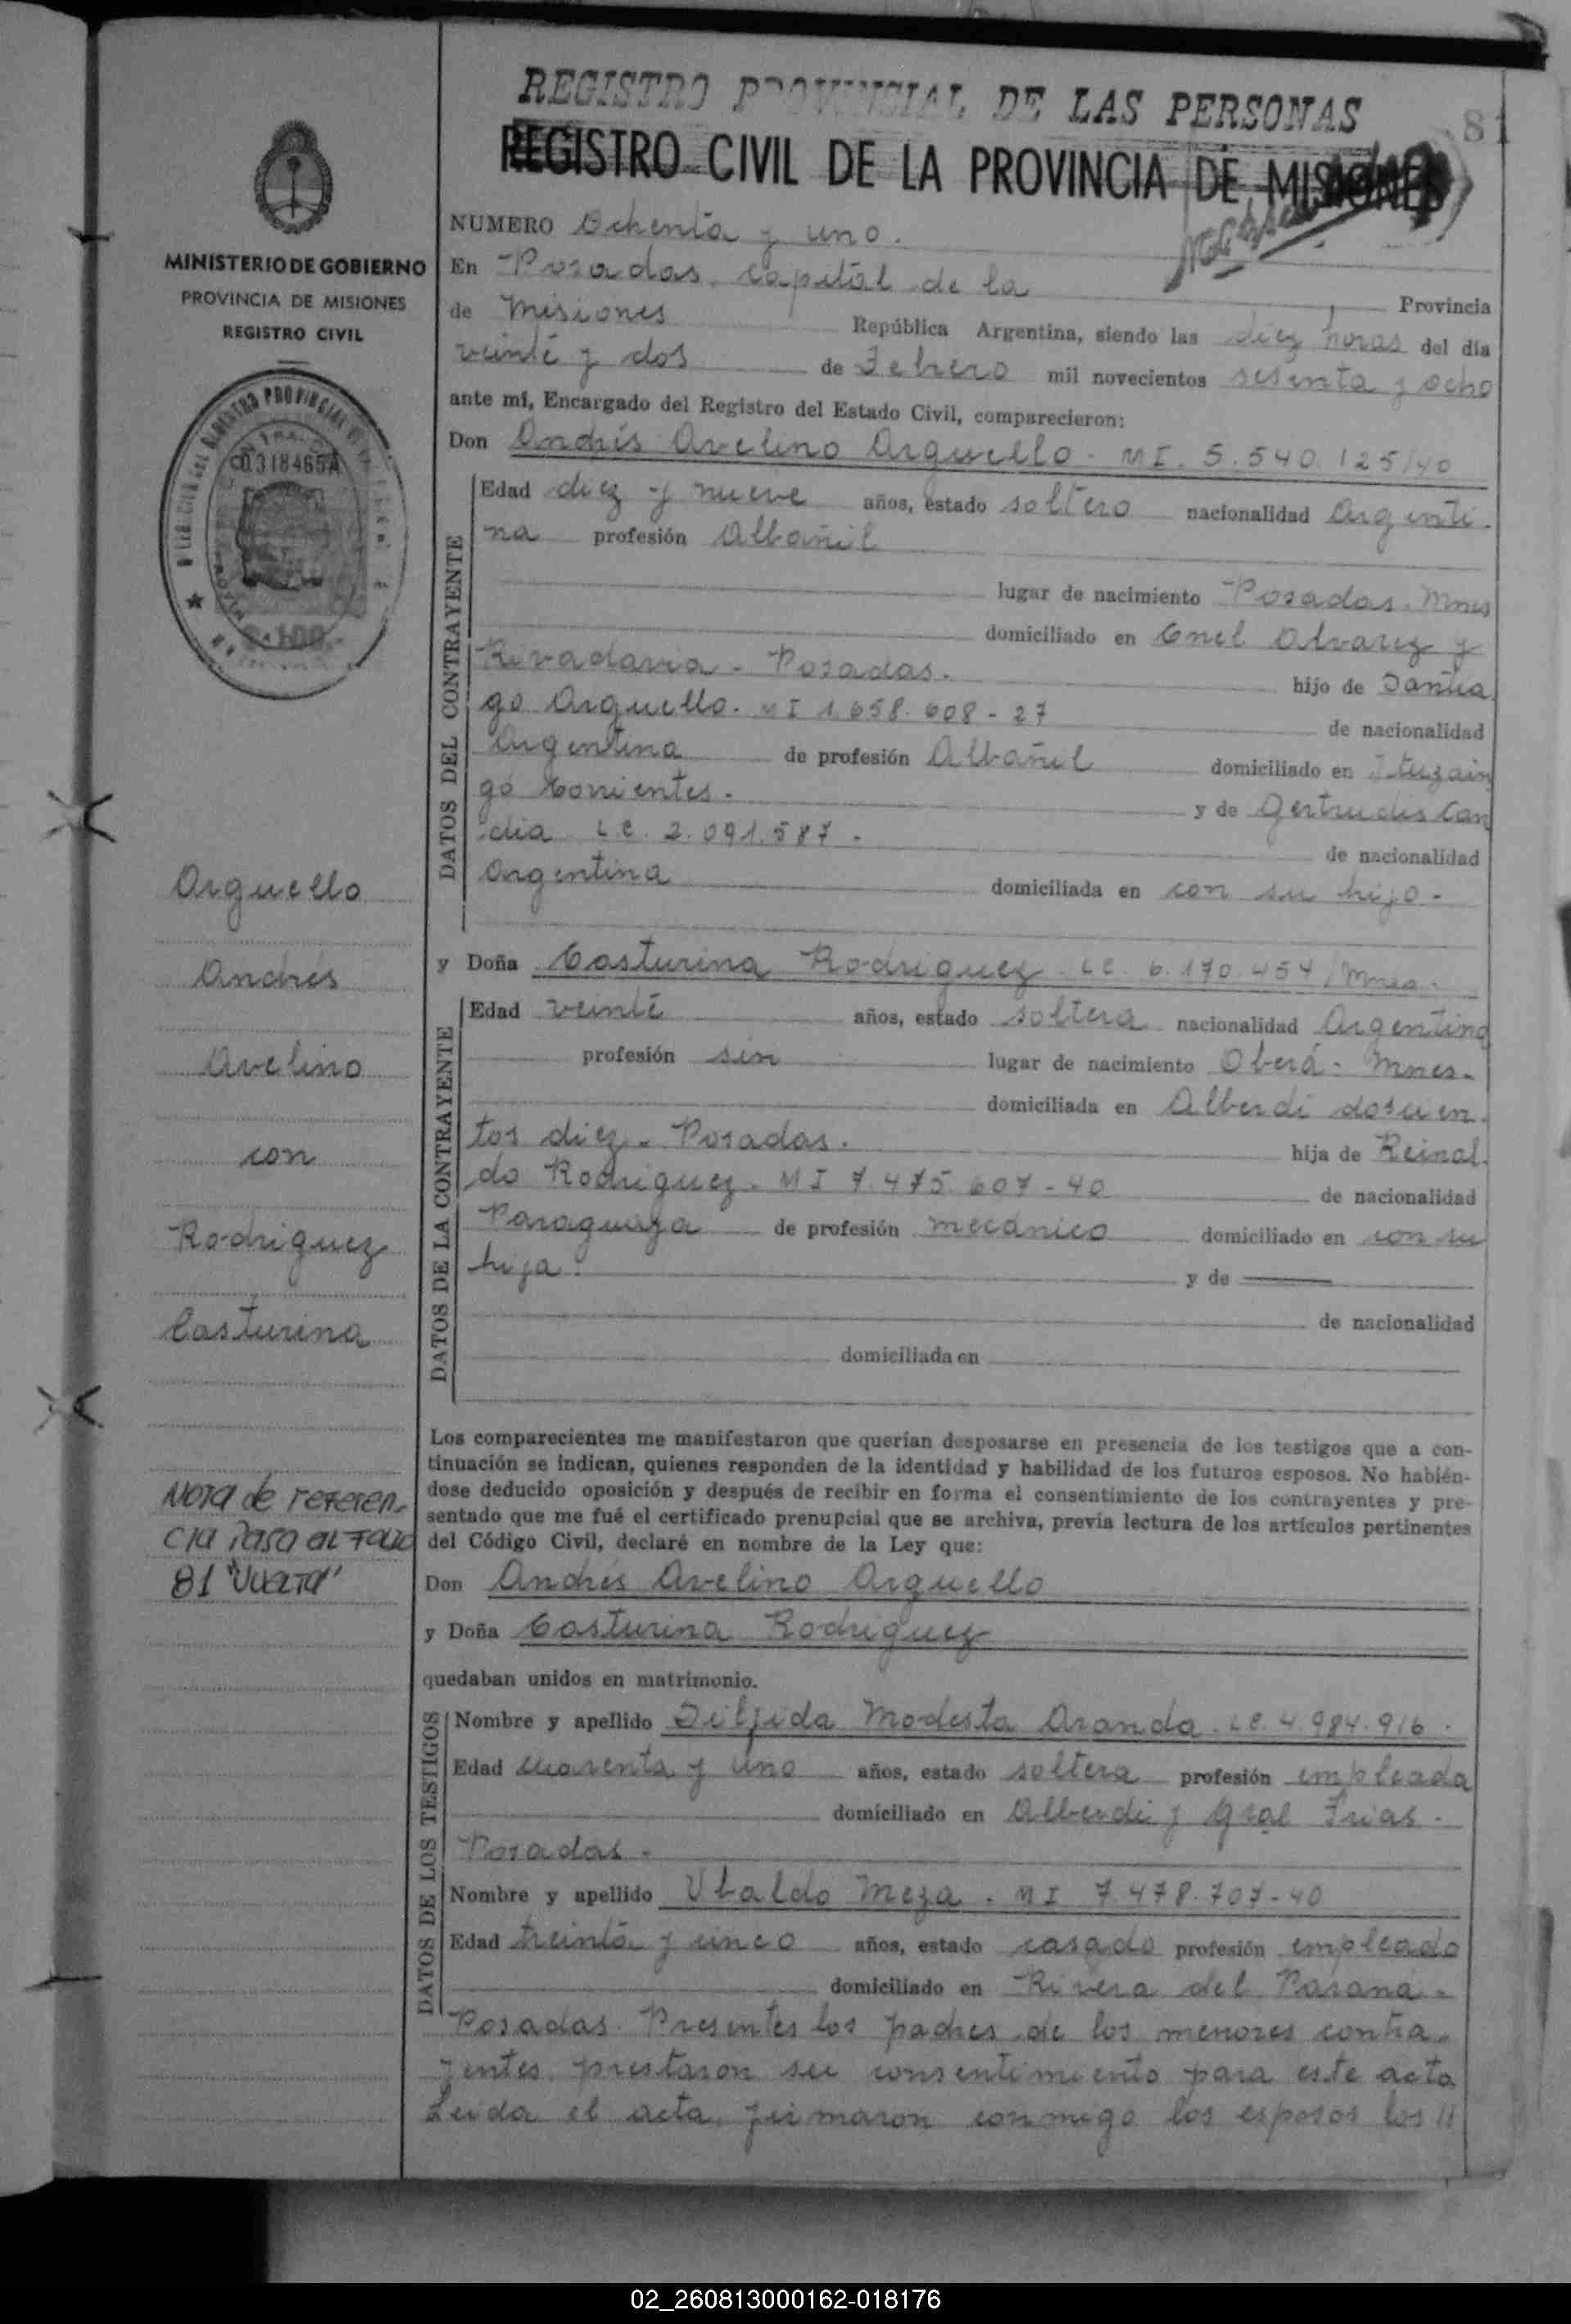 REGISTRO PROVINCIAL DE LAS PERSONAS
81
REGISTRO CIVIL DE LA PROVINCIA DE MISIONES
MINISTERIO DE GOBIERNO
PROVINCIA DE MISIONES
REGISTRO CIVIL
0318465A
NUMERO Ochenta y uno.
En Posadas, capital de la Provincia
de Misiones República Argentina, siendo las diez horas del día
veinte y dos de Febrero mil novecientos sesenta y ocho
ante mí, Encargado del Registro del Estado Civil, comparecieron:
Don Andrés Avelino Arguello - MI. 5.540.125/40
DATOS DEL CONTRAYENTE
Edad diez y nueve años, estado soltero nacionalidad Argenti-
na profesión Albañil
lugar de nacimiento Posadas. Mnes
domiciliado en Cnel Alvarez y
Rivadavia - Posadas. hijo de Santia
go Arguello. MI 1.658.608 - 27 de nacionalidad
Argentina de profesión Albañil domiciliado en Ituzain
go Corrientes. y de Gertrudis Can
dia LC. 2.091.587. de nacionalidad
Argentina domiciliada en con su hijo.
y Doña Casturina Rodriguez LC. 6.170.454/Mnes.
DATOS DE LA CONTRAYENTE
Edad veinte años, estado soltera nacionalidad Argentina
profesión sin lugar de nacimiento Oberá - Mnes.
domiciliada en Alberdi doscien
tos diez. Posadas. hija de Reinal
do Rodriguez. MI 7.475.607 - 40 de nacionalidad
Paraguaya de profesión mecánico domiciliado en con su
hija. y de
de nacionalidad
domiciliada en
Los comparecientes me manifestaron que querían desposarse en presencia de los testigos que a con-
tinuación se indican, quienes responden de la identidad y habilidad de los futuros esposos. No habién-
dose deducido oposición y después de recibir en forma el consentimiento de los contrayentes y pre-
sentado que me fué el certificado prenupcial que se archiva, previa lectura de los artículos pertinentes
del Código Civil, declaré en nombre de la Ley que:
Don Andrés Avelino Arguello
y Doña Casturina Rodriguez
quedaban unidos en matrimonio.
DATOS DE LOS TESTIGOS
Nombre y apellido Modesta Aranda. LC. 4.984.916.
Edad cuarenta y uno años, estado soltera profesión empleada
domiciliado en Alberdi y Gral Frias.
Posadas.
Nombre y apellido Ubaldo Meza. MI 7.478.707-40
Edad treinta y cinco años, estado casado profesión empleado
domiciliado en Rivera del Paraná.
Posadas. Presentes los padres de los menores contra-
yentes, prestaron su consentimiento para este acto.
Leida el acta, firmaron conmigo los esposos los //
Arguello
Andrés
Avelino
con
Rodriguez
Casturina
Nota de referen-
cia pasa al folio
81 "vuelta"
02_260813000162-018176